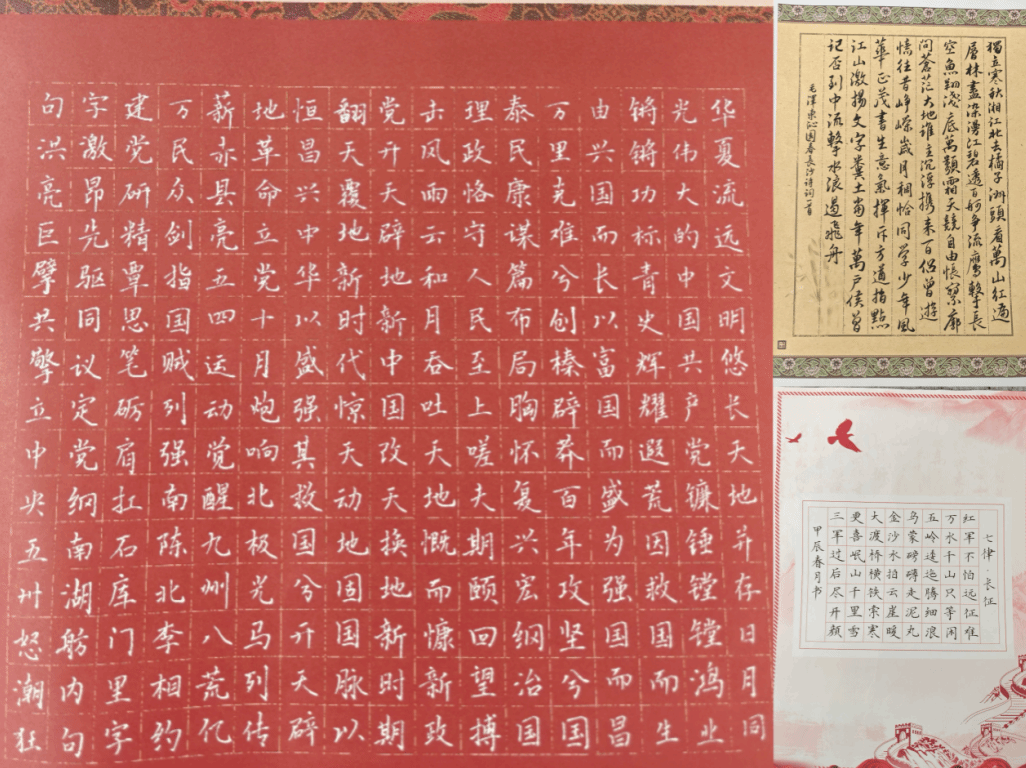 华夏流远文明悠长天地并存日月同
光伟大的中国共产党镰锤镗镗鸿业
锵锵功标青史辉耀遐荒因救国而生
由兴国而长以富国而盛为强国而昌
万里克难兮创榛辟莽百年攻坚兮国
泰民康谋篇布局胸怀复兴宏纲治国
理政恪守人民至上嗟夫期颐回望搏
击风雨云和月吞吐天地慨而慷新政
党开天辟地新中国改天换地新时期
翻天覆地新时代惊天动地固国脉以
恒昌兴中华以盛强其救国兮开天辟
地革命立党十月炮响北极光马列传
薪赤县亮五四运动觉醒九州八荒亿
万民众剑指国贼列强南陈北李相约
建党研精覃思笔砺肩扛石库门里字
字激昂先驱同议定党纲南湖舫内句
句洪亮巨擘共擎立中央五卅怒潮狂
獨立寒秋湘江北去橘子洲頭看萬山紅遍
層林盡染漫江碧透百舸争流鷹擊長
空魚翔淺底萬類霜天競自由悵寥廓
问蒼茫大地誰主沉浮携来百侣曾遊
憶往昔崢嶸歲月稠恰同学少年風
華正茂書生意氣揮斥方遒指點
江山激揚文字糞土當年萬户侯曾
记否到中流擊水浪遏飛舟
毛澤東沁园春長沙诗词一首
七律·长征
红军不怕远征难
万水千山只等闲
五岭逶迤腾细浪
乌蒙磅礴走泥丸
金沙水拍云崖暖
大渡桥横铁索寒
更喜岷山千里雪
三军过后尽开颜
甲辰春月书